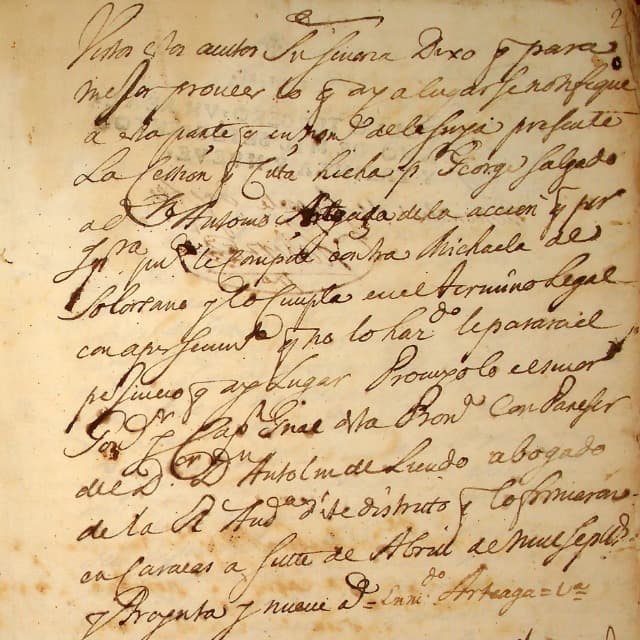 2
Vistos estos autos Su señoria Dixo q para
mejor proveer lo q aya lugar se notifique
a esta parte q en nomᵉ de la suya presente
La Cession q Cita hecha pʳ George Salgado
a Dⁿ Antonio Arteaga de la accion q por
le Compete contra Michaela de
Solorsano y lo cumpla en el termino Legal
con apersevimᵗᵒ q no lo harᵈᵒ le parara el
perjuicio q aya Lugar Proveyolo el señor
Govᵒʳ y Capⁿ Gral desta Provᵃ Con Pareser
del Dᵒʳ Dⁿ Antolin de Liendo abogado
de la Rˡ Audᵃ deste distrito y lo firmaron
en Caracas a siete de Abril de mil septᵒˢ
y nueve aˢ = Arteaga =